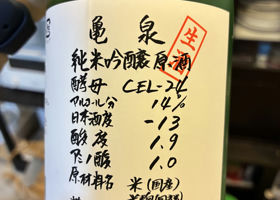 亀泉
生酒
純米吟醸原酒
酵母 CEL-24
アルコール分 14%
日本酒度 -13
酸度 1.9
アミノ酸 1.0
原材料名 米(国産)